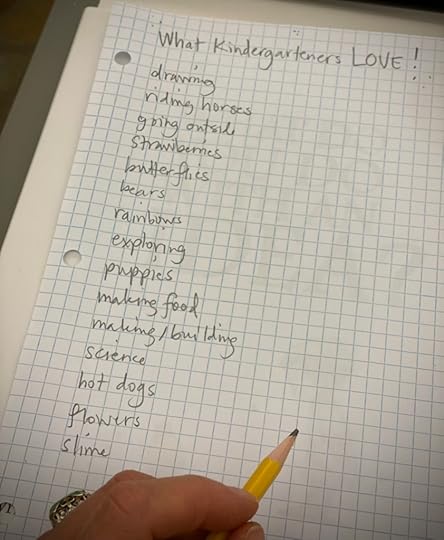 What Kindergarteners LOVE!
drawing
riding horses
going outside
strawberries
butterflies
bears
rainbows
exploring
puppies
making food
making/building
science
hot dogs
flowers
slime